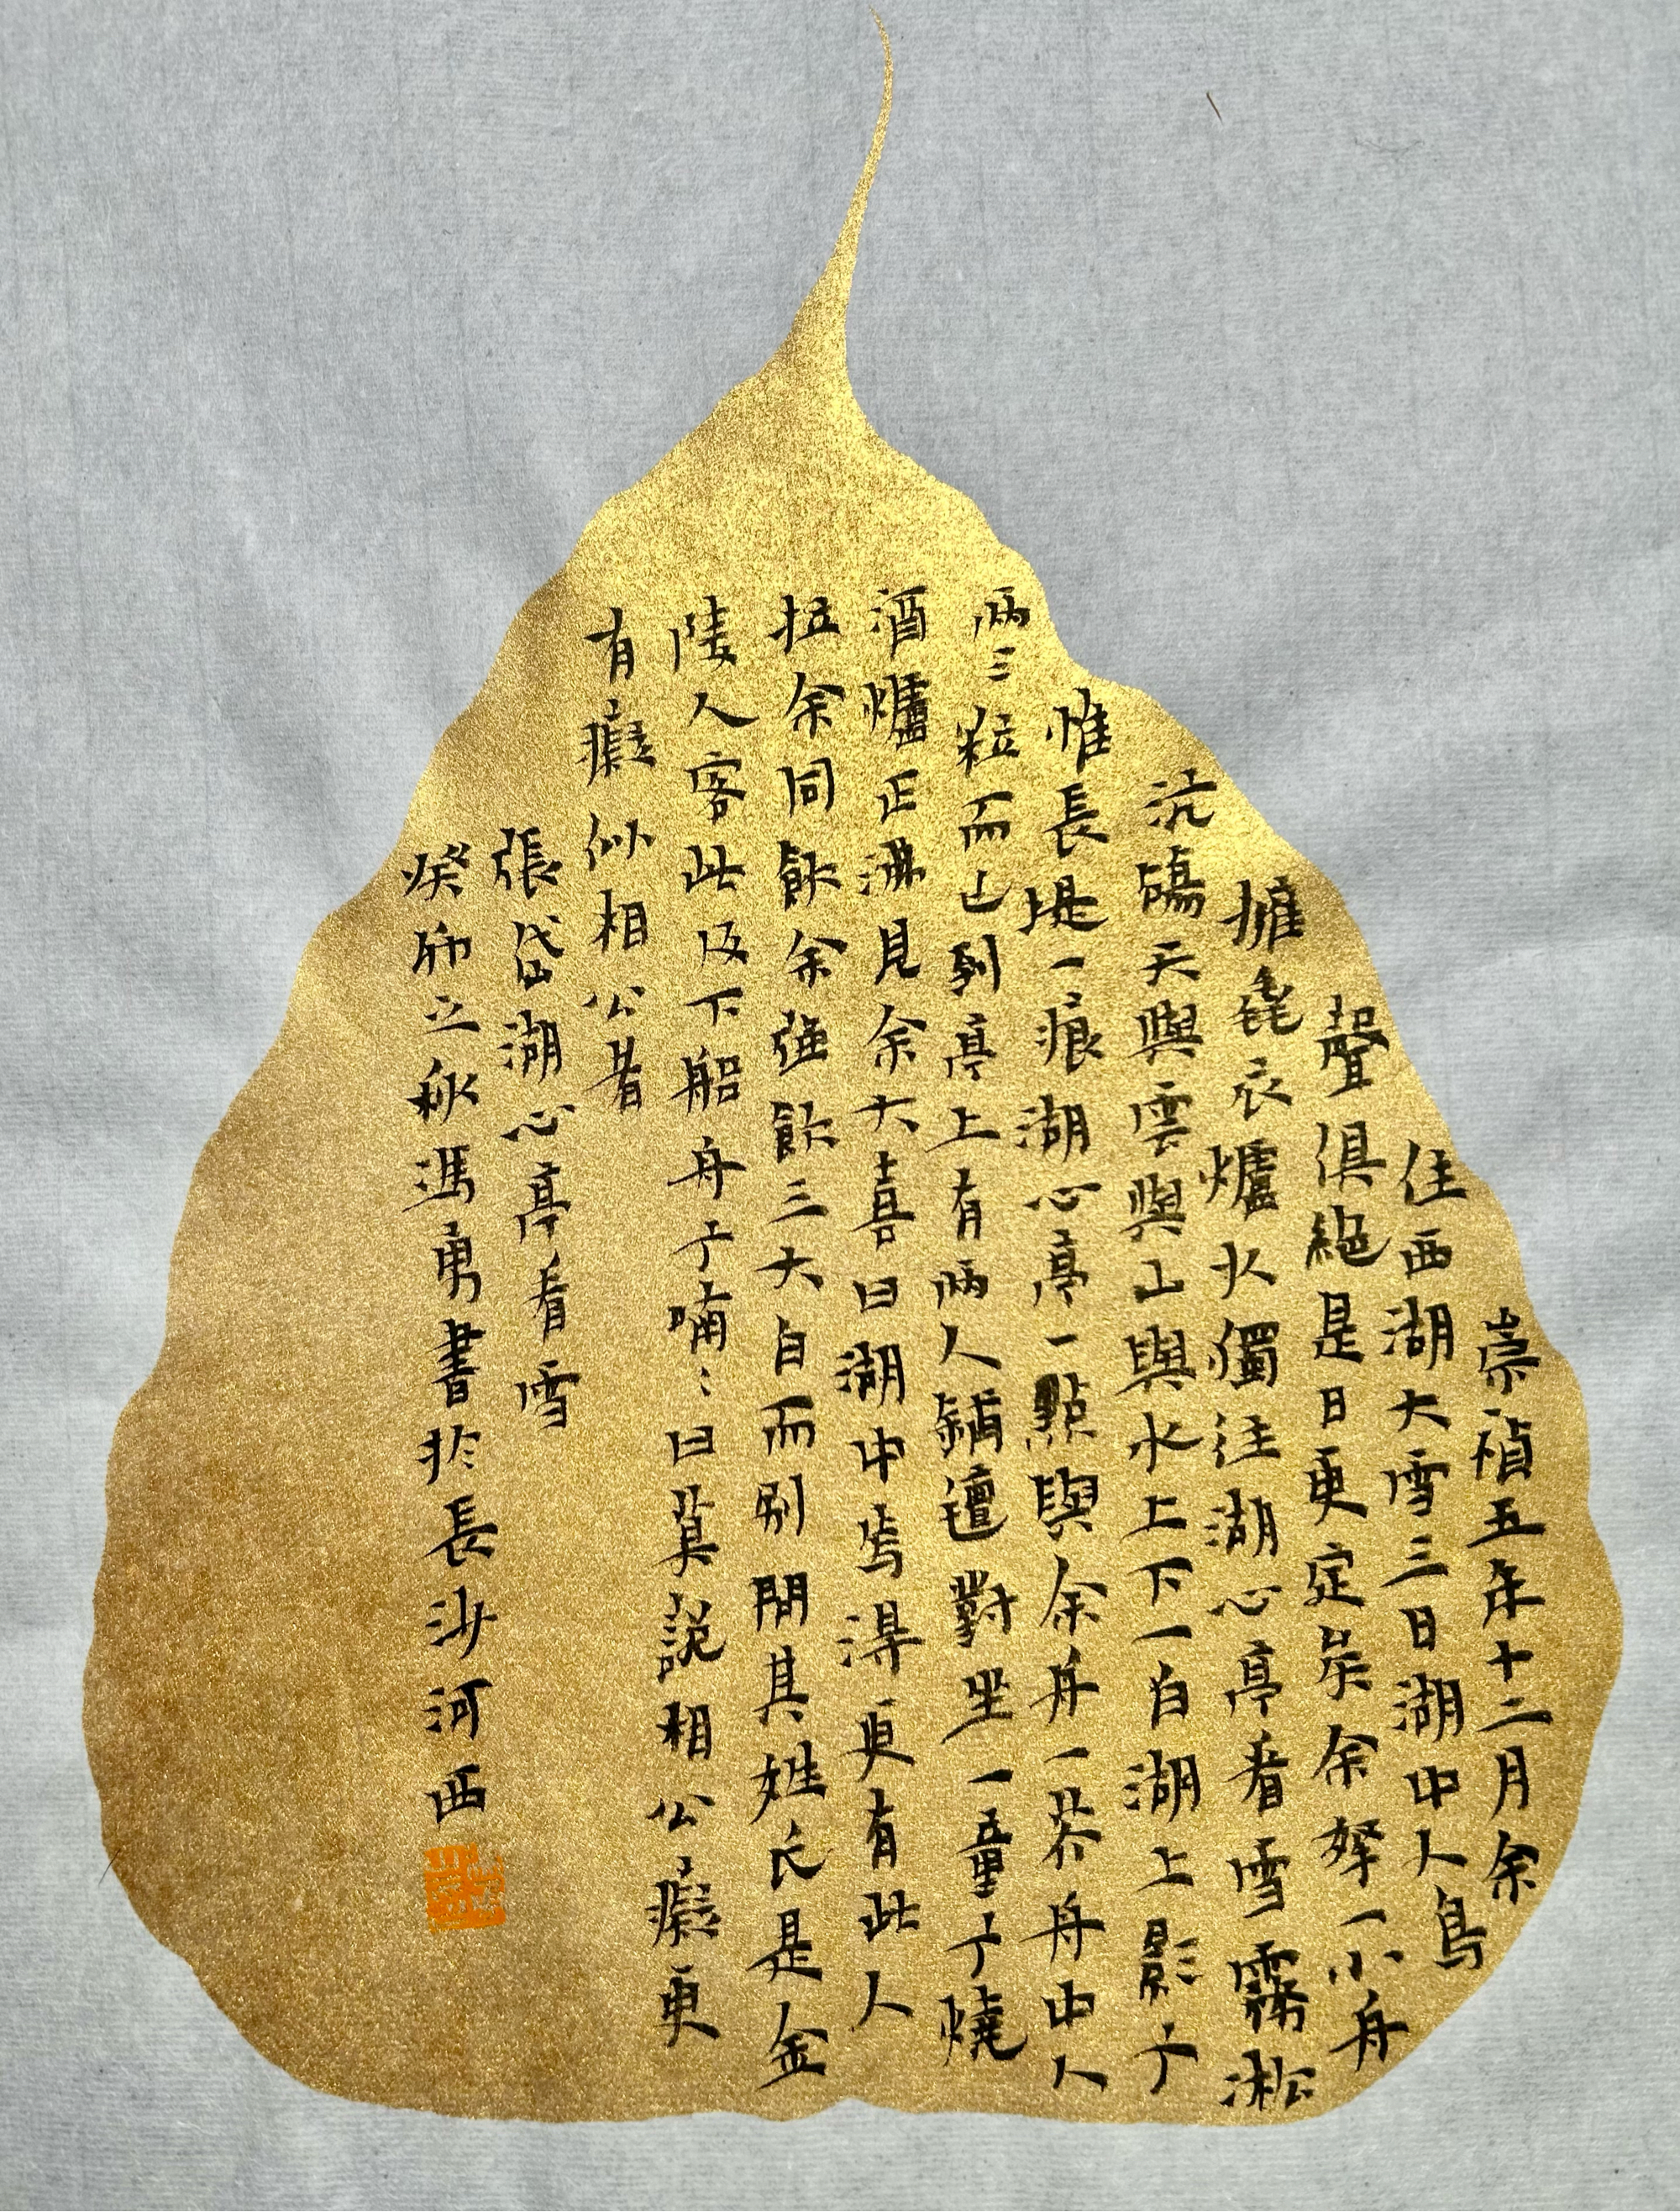 崇禎五年十二月余
住西湖大雪三日湖中人鳥
聲俱絕是日更定矣余拏一小舟
擁毳衣爐火獨往湖心亭看雪霧淞
沆碭天與雲與山與水上下一白湖上影子
惟長堤一痕湖心亭一點與余舟一芥舟中人
兩三粒而已到亭上有兩人鋪氈對坐一童子燒
酒爐正沸見余大喜曰湖中焉得更有此人
拉余同飲余強飲三大白而別問其姓氏是金
陵人客此及下船舟子喃〻曰莫說相公癡更
有癡似相公者
張岱湖心亭看雪
癸卯之秋馮勇書於長沙河西